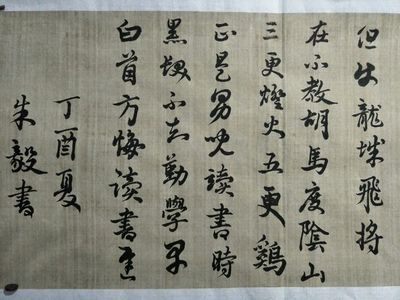 但使龍城飛將
在不教胡馬度陰山
三更燈火五更鷄
正是男兒读書時
黑髮不知勤學早
白首方悔读書遲
丁酉夏
朱毅書